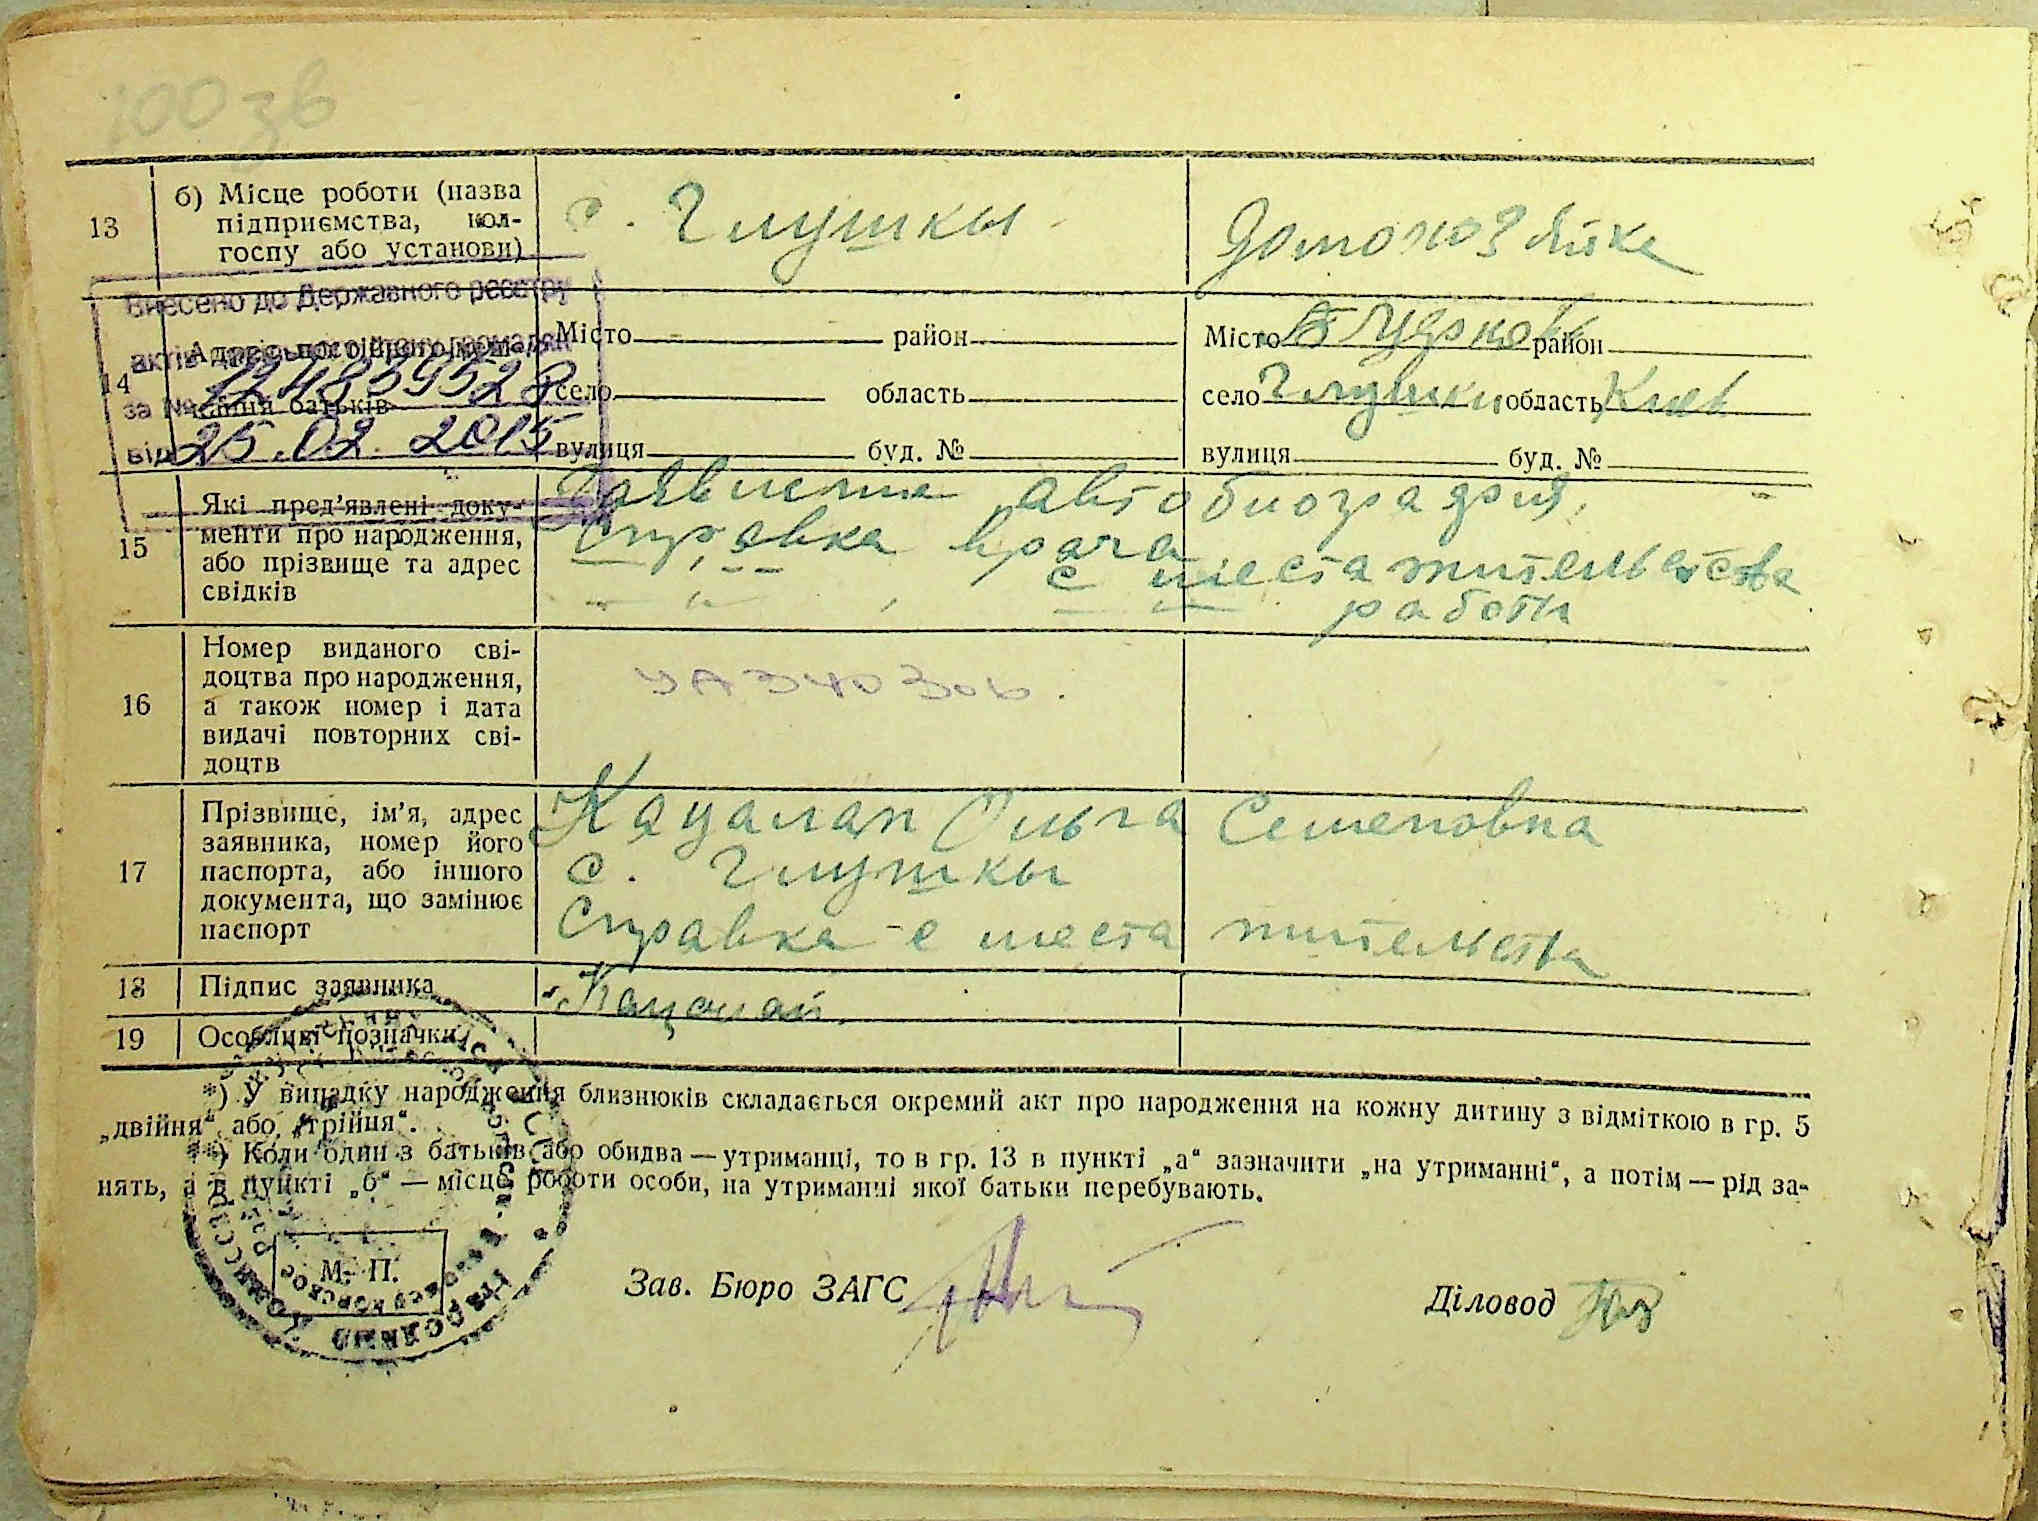 100 зв
13
б) Місце роботи (назва
підприємства, кол-
госпу або установи)
с. Глушкы
Домохозяйка
Внесено до Державного реєстру
актів цивільного стану громадян
за № 12483952
від 25.02.2015
14
Адрес постійного мешкання батьків
Місто район
село область
вулиця буд. №
Місто Б Церков район
село Глушки область Киев
вулиця буд. №
15
Які пред'явлені доку-
менти про народження,
або прізвище та адрес
свідків
Заявление автобиография,
Справка врача
с места жительства
работы
16
Номер виданого сві-
доцтва про народження,
а також номер і дата
видачі повторних сві-
доцтв
УА 340306.
17
Прізвище, ім'я, адрес
заявника, номер його
паспорта, або іншого
документа, що замінює
паспорт
Кацалап Ольга Семеновна
с. Глушкы
Справка с места жительства
18
Підпис заявника
Кацалап
19
Особливі позначки
*) У випадку народження близнюків складається окремий акт про народження на кожну дитину з відміткою в гр. 5
„двійня“ або „трійня“.
**) Коли один з батьків або обидва — утриманці, то в гр. 13 в пункті „а“ зазначити „на утриманні“, а потім — рід за-
нять, а в пункті „б“ — місце роботи особи, на утриманні якої батьки перебувають.
М. П.
Зав. Бюро ЗАГС
Діловод